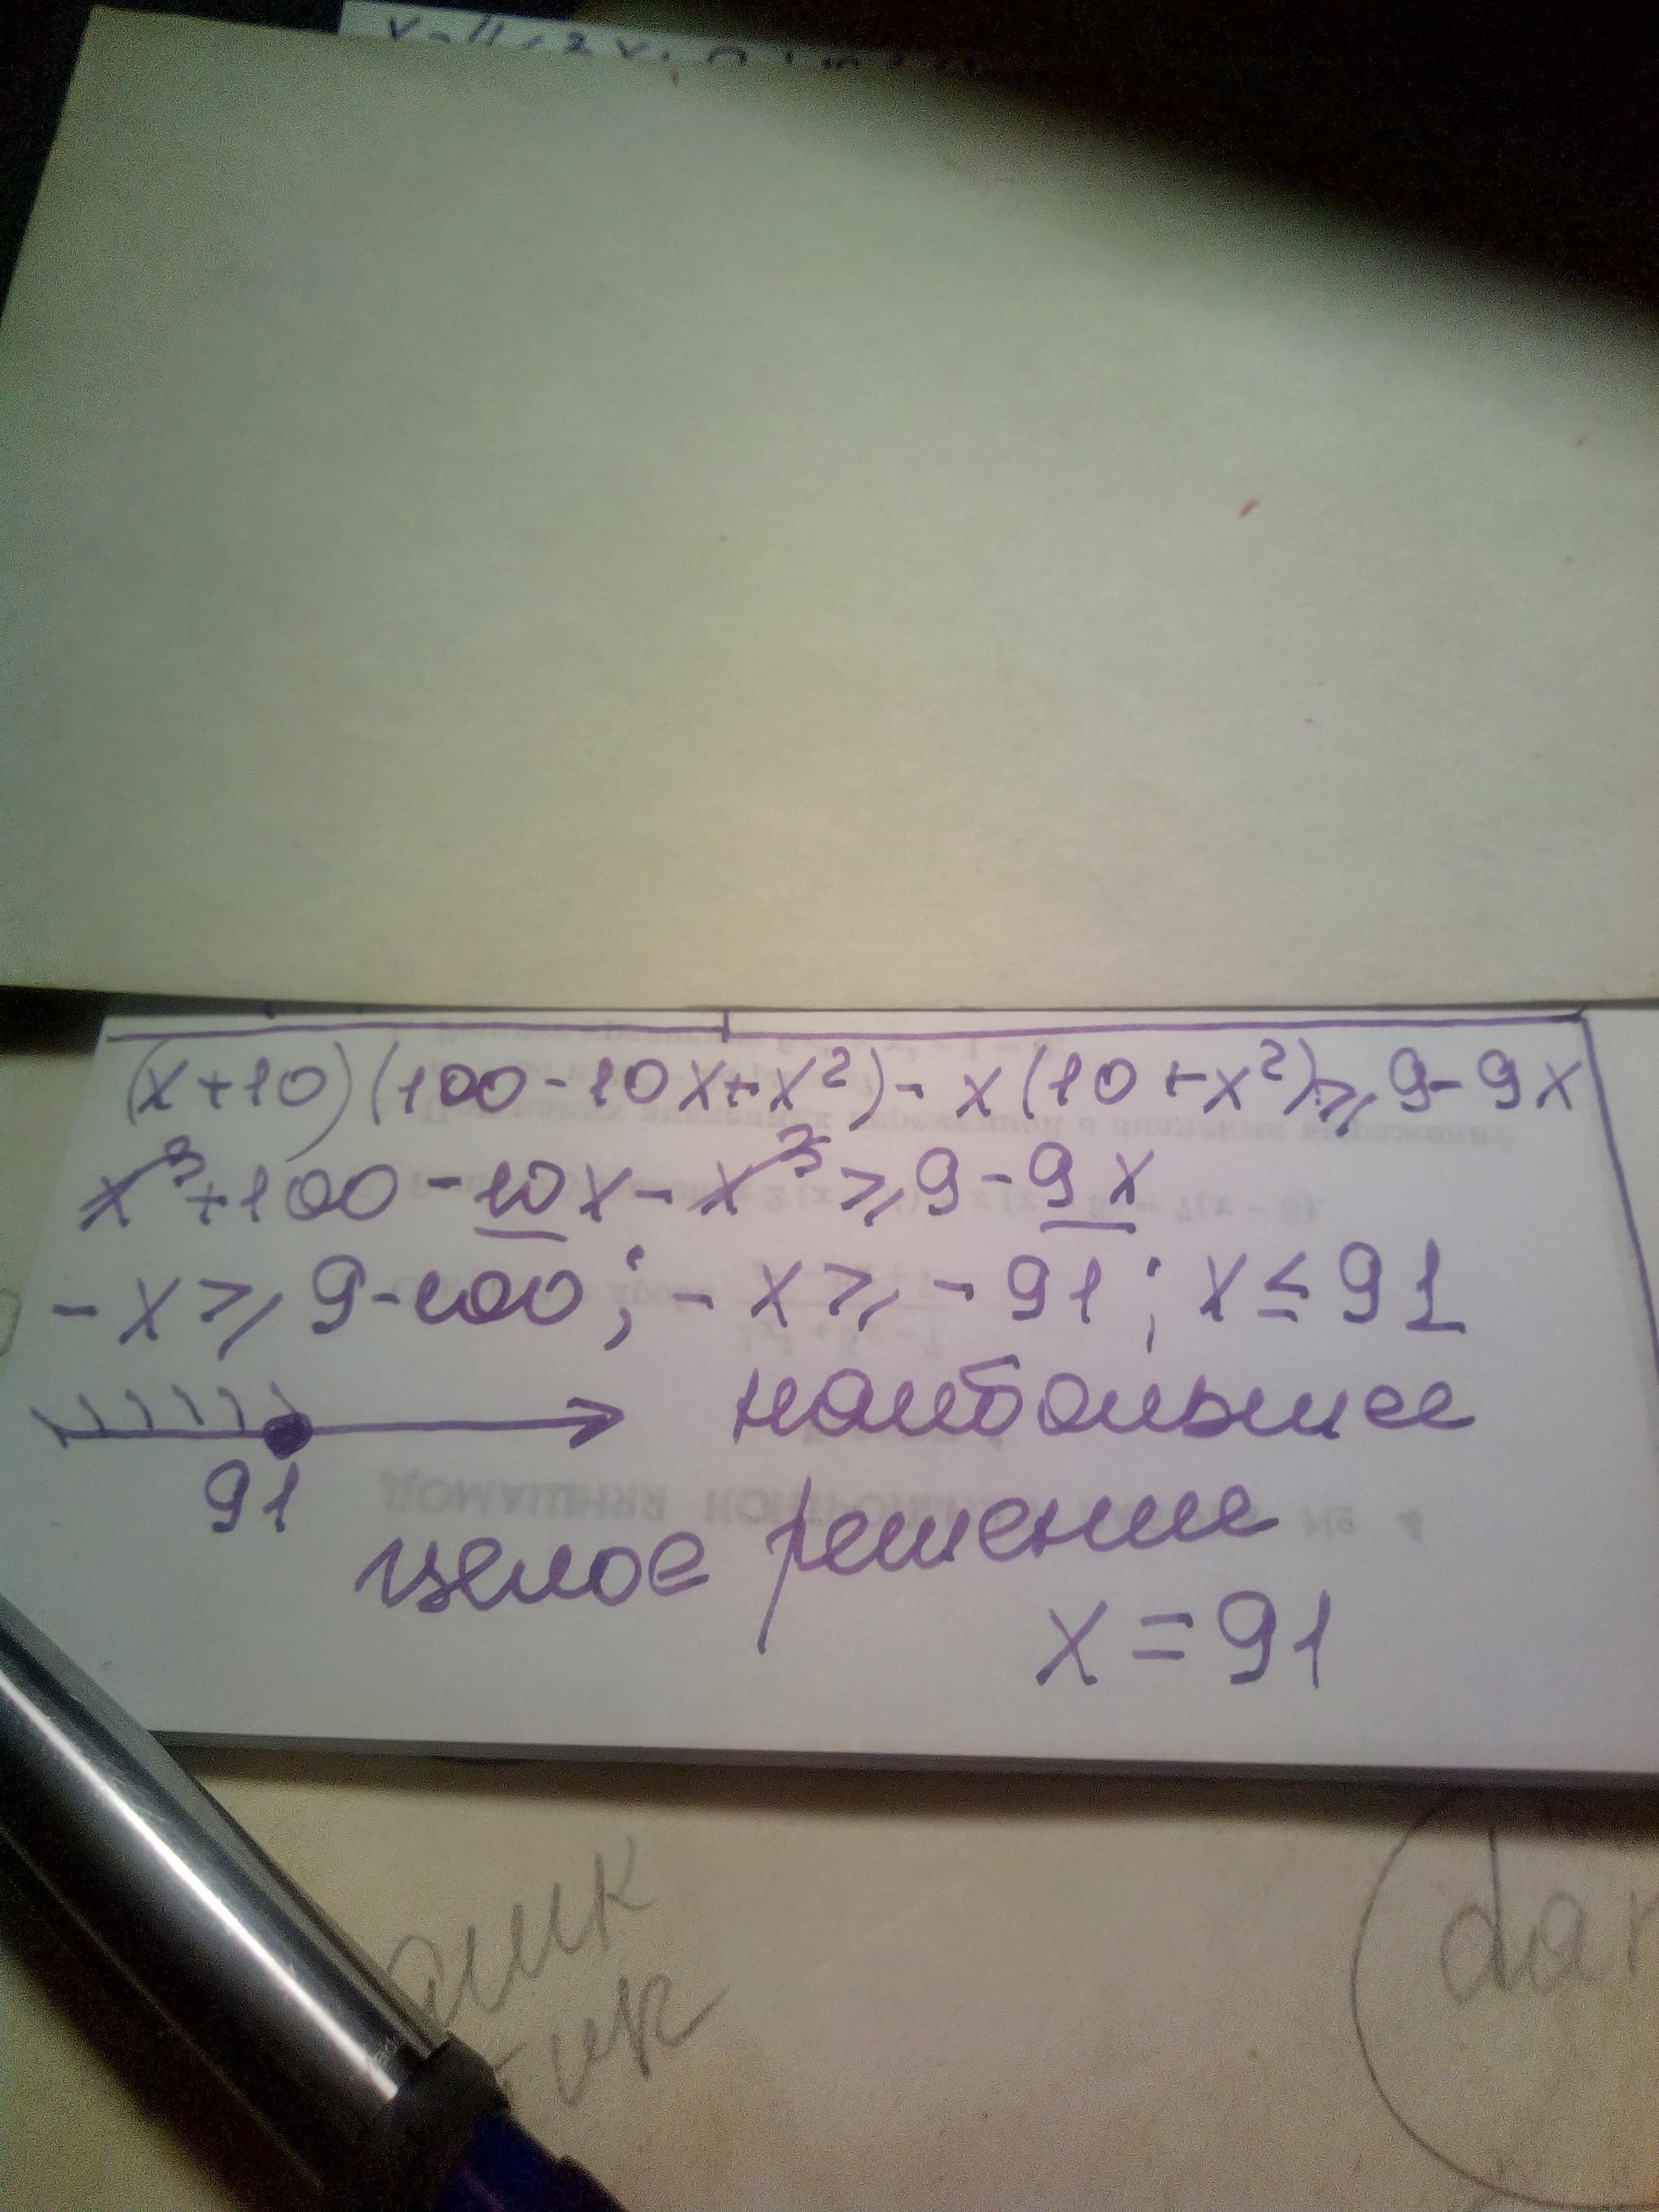 (x+10)(100-10x+x²)-x(10+x²)⩾9-9x
x³+100-10x-x³⩾9-9x
-x⩾9-100; -x⩾-91; x≤91
наибольшее
91
целое решение
x=91
dar